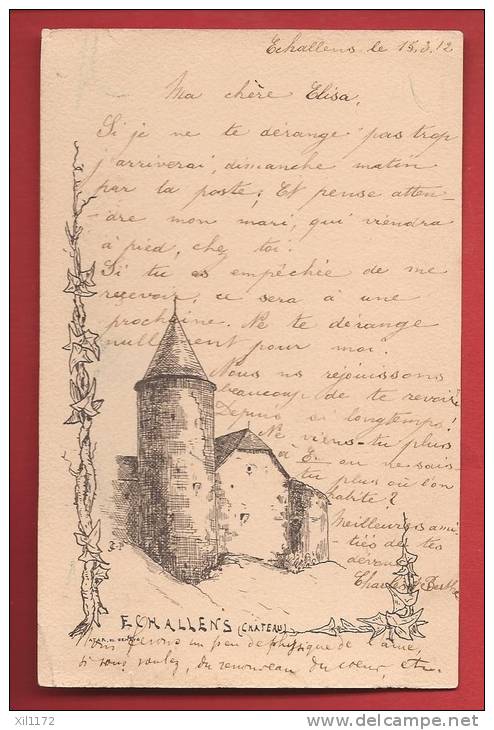 Echallens le 15.3.12
Ma chère Elisa,
Si je ne te dérange pas trop
j'arriverai, dimanche matin
par la poste; Et pense atten-
-dre mon mari, qui viendra
à pied, che toi.
Si tu es empêchée de me
recevoir, ce sera à une
prochaine. Ne te dérange
nullement pour moi.
Nous ns réjouissons
beaucoup de te revoir
Depuis si longtemps!
Ne viens-tu plus
à E. ou ne sais
tu plus où l'on
habite?
Meilleures ami-
-tiés de tes
dévoués
Charles & Berthe
ECHALLENS (CHÂTEAU)
un peu de physique de l'âme,
si vous voulez, du renouveau du coeur, etc.
xil1172